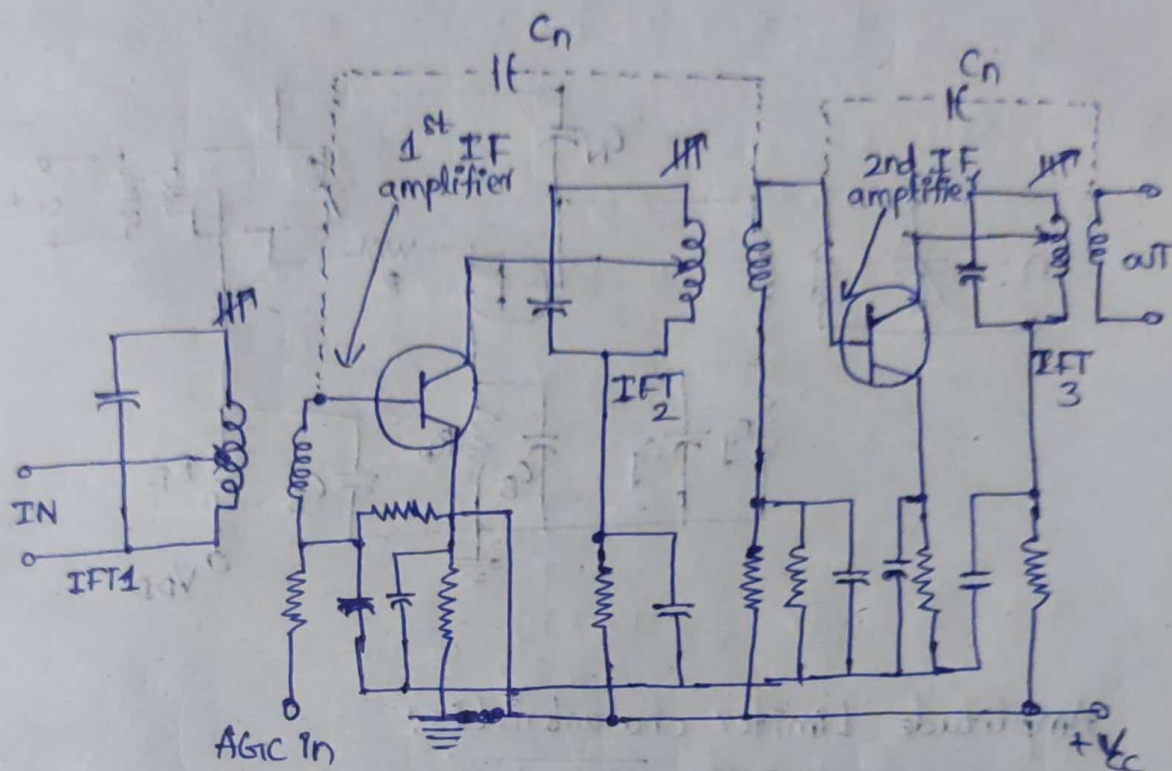 Cn
Cn
1st IF
amplifier
2nd IF
amplifier
IN
IFT1
IFT
2
IFT
3
AGC in
+Vcc